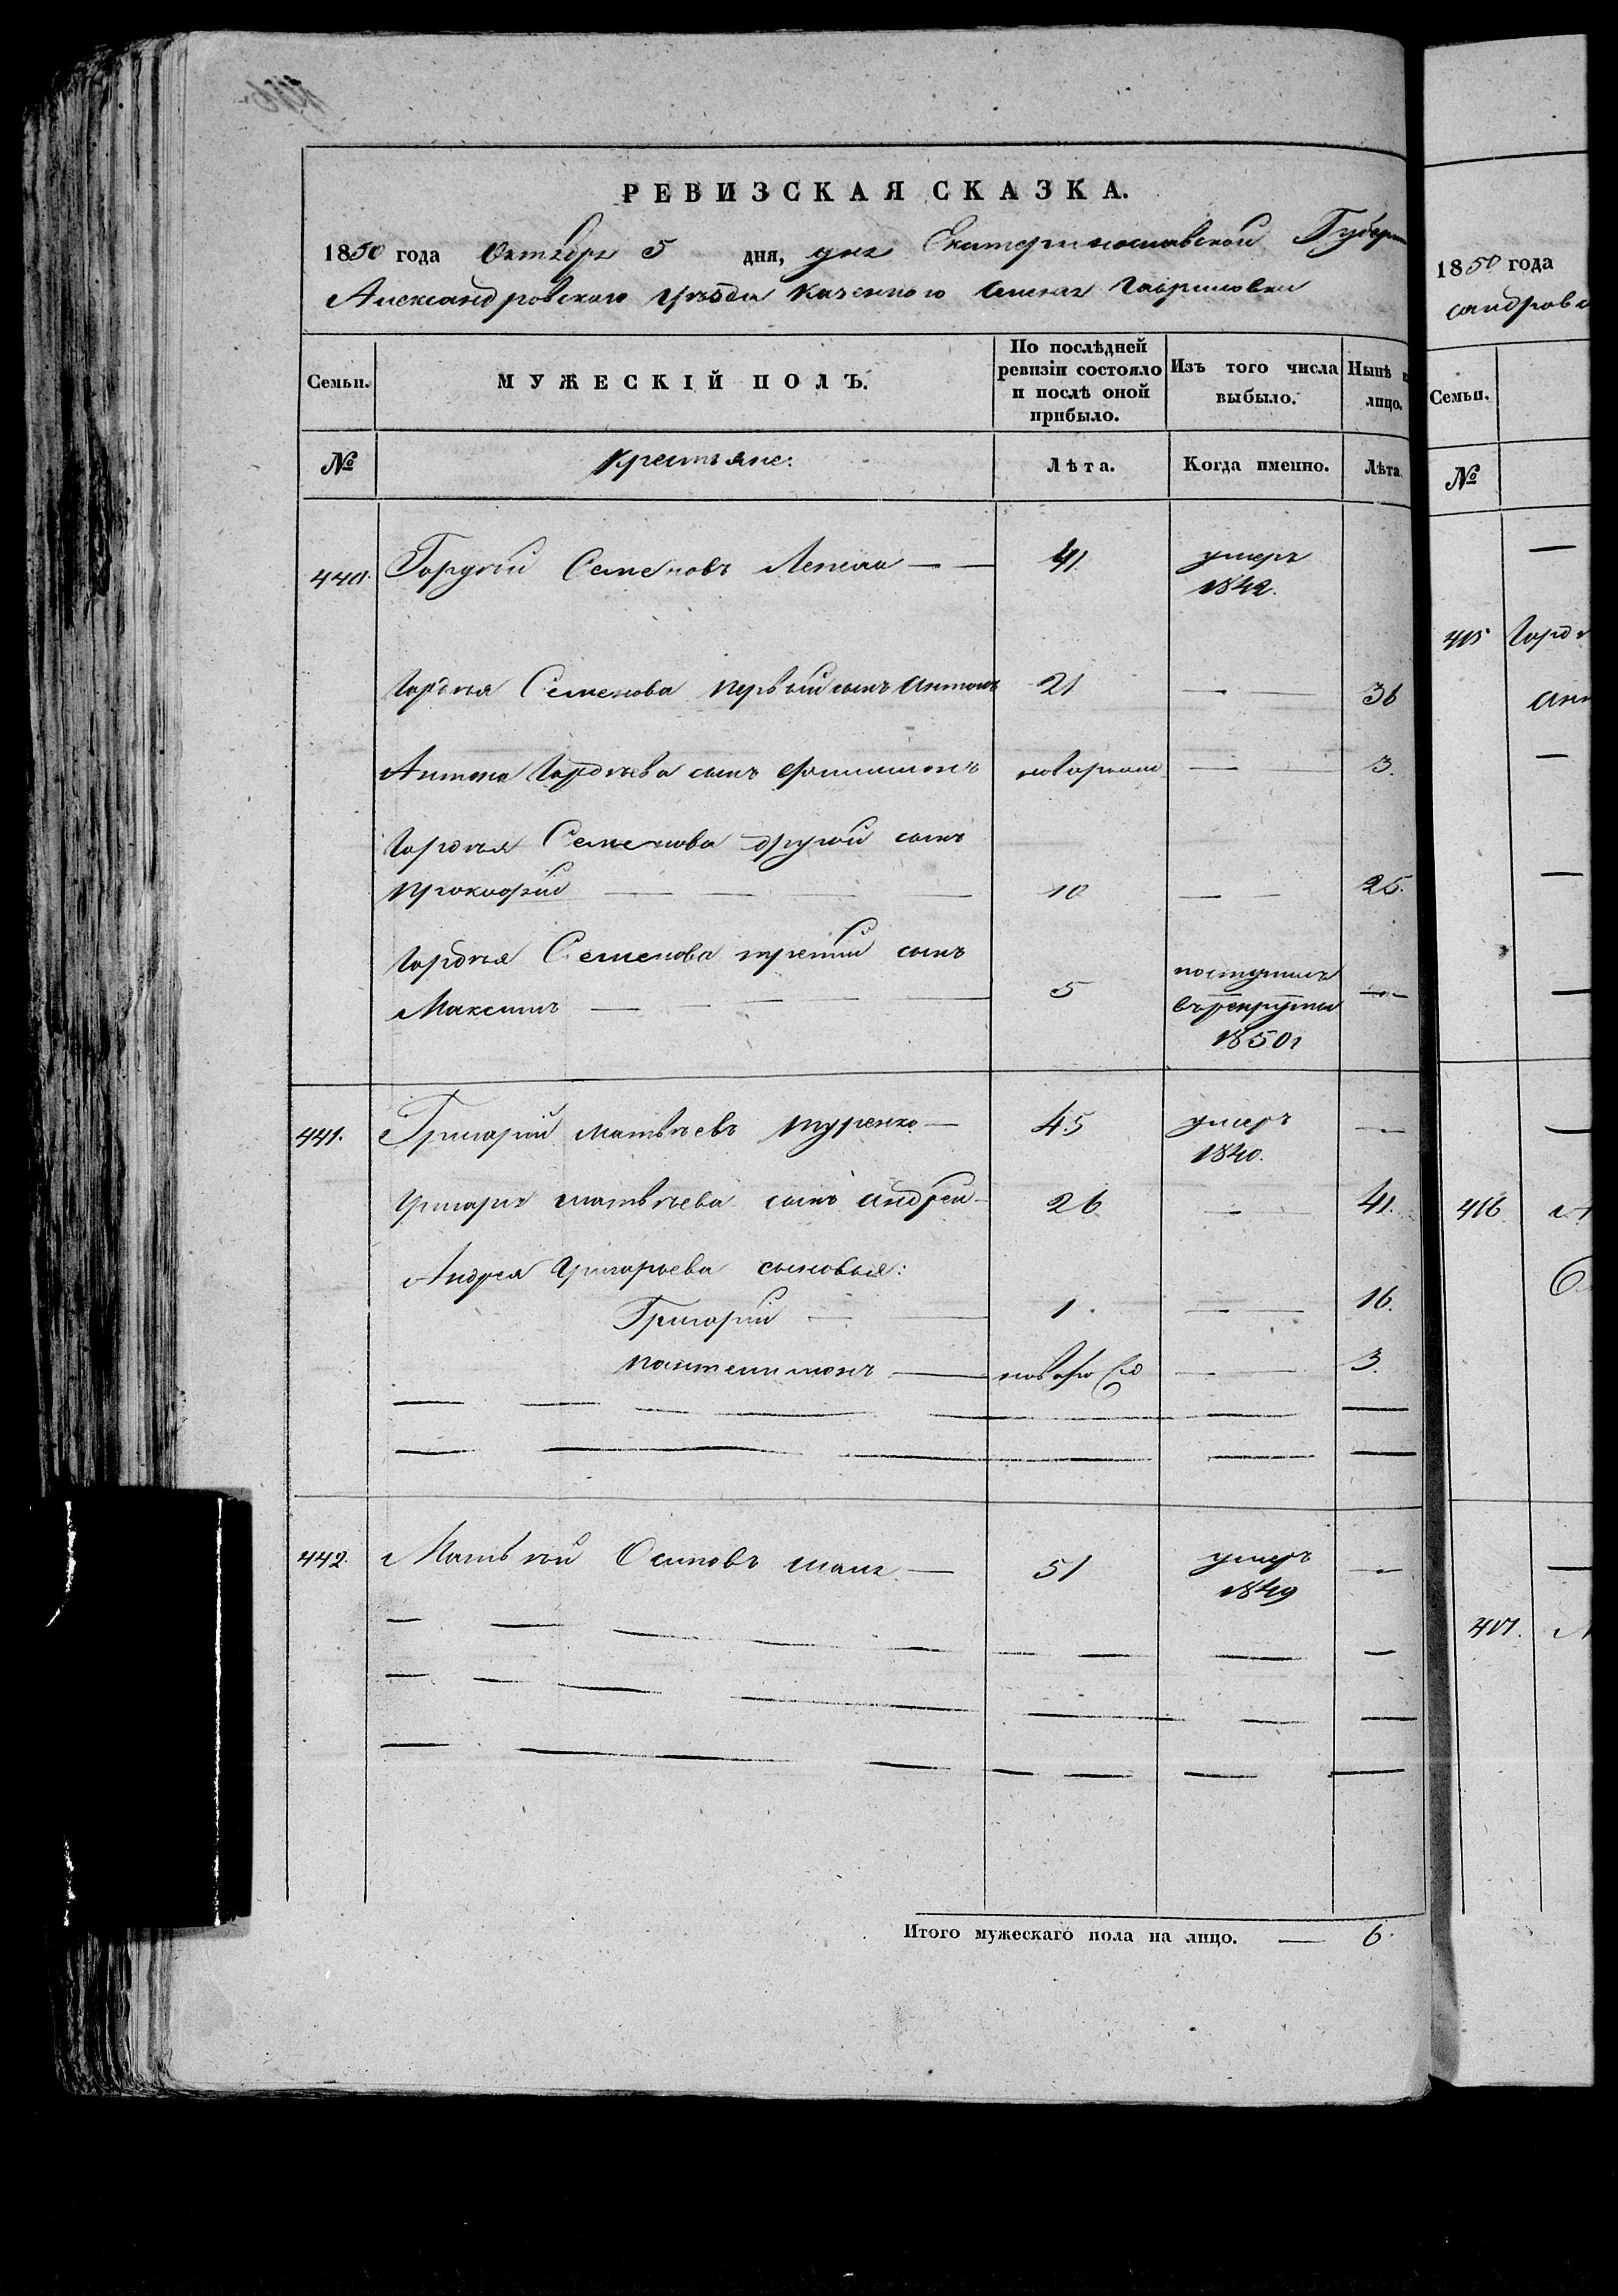 РЕВИЗСКАЯ СКАЗКА.
1850 года Октября 5 дня, Екатеринославской Губерн
Александровского уѣзда казенного селения Гавриловки
Семьи.
МУЖЕСКІЙ ПОЛЪ.
По послѣдней ревизіи состояло и послѣ оной прибыло.
Изъ того числа выбыло.
Нынѣ н лицо.
№
Крестьяне:
Лѣта.
Когда именно.
Лѣта
440. Гордѣй Семеновъ — — 41 умеръ
1842.
Гордѣя Семенова первый сынъ Антонъ 21 — 36
Антона Гордѣева сынъ — 3.
Гордѣя Семенова другой сынъ
Прокофій — — — 10 — 25.
Гордѣя Семенова третий сынъ
Максимъ — — — — 5 поступилъ —
въ рекруты
1850г
441. Григорий Матвѣевъ Туренко — 45 умеръ —
1840.
Григорія Матвѣева сынъ Андрей 26 — 41.
Андрея Григорьева сыновья:
Григорій — — 1 — 16.
Пантелимонъ — новоро — 3.
442. Матвѣй Осиповъ — 51 умеръ —
1849
Итого мужескаго пола на лицо. — 6.
1850 года
сандровс
Семьи.
№
415 Горд
Ан
416
417.